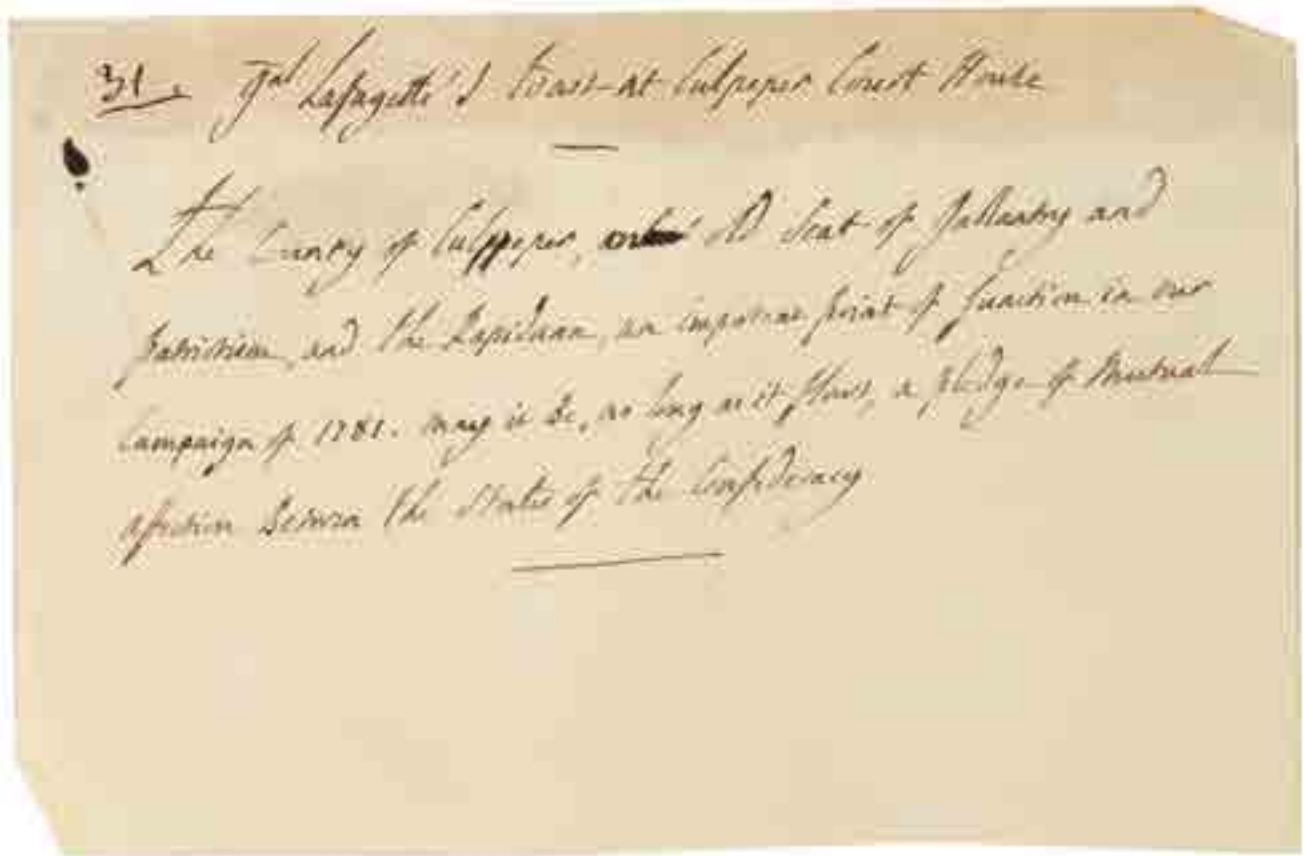 31. Gal Lafayette's Toast at Culpeper Court House
The County of Culpeper, old Seat of Gallantry and
patriotism, and the Rapidann, an important point of Junction in our
Campaign of 1781. may it be, as long as it flows, a pledge of Mutual
affection Between the States of the Confederacy